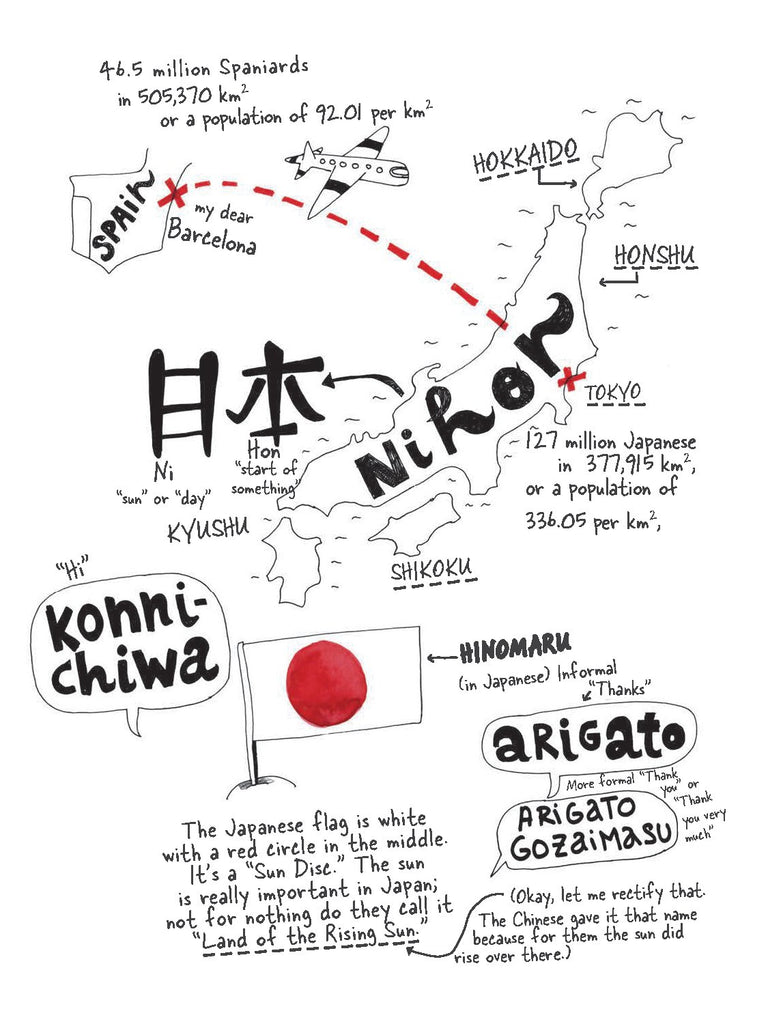 46.5 million Spaniards
in 505,370 km²
or a population of 92.01 per km²
SPAIN
my dear
Barcelona
HOKKAIDO
HONSHU
Nihon
TOKYO
127 million Japanese
in 377,915 km²,
or a population of
336.05 per km²,
日本
Ni
"sun" or "day"
Hon
"start of
something"
KYUSHU
SHIKOKU
"Hi"
Konni-
chiwa
HINOMARU
(in Japanese) Informal
"Thanks"
ARiGato
More formal "Thank
you" or
"Thank
you very
much"
ARiGATO
GOZAiMASU
The Japanese flag is white
with a red circle in the middle.
It's a "Sun Disc." The sun
is really important in Japan;
not for nothing do they call it
"Land of the Rising Sun."
(Okay, let me rectify that.
The Chinese gave it that name
because for them the sun did
rise over there.)